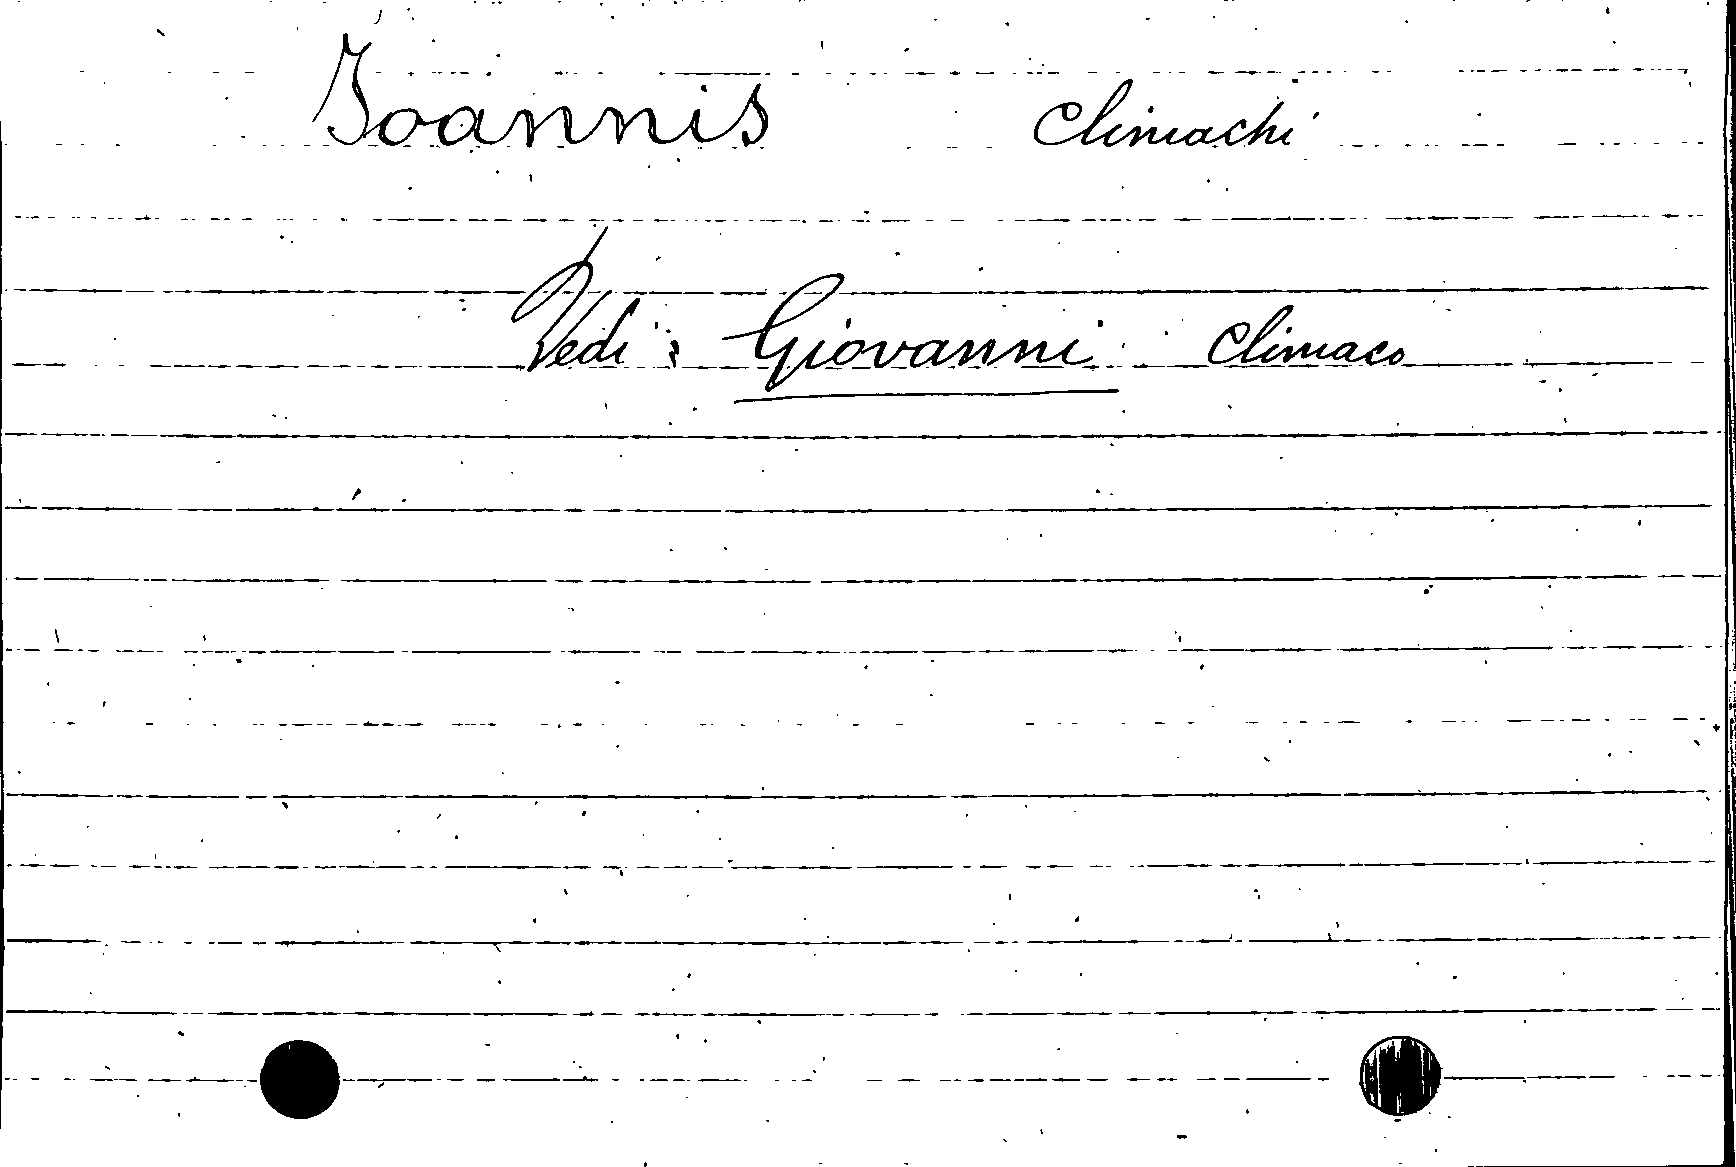 Joannis Climachi
Vedi: Giovanni Climaco